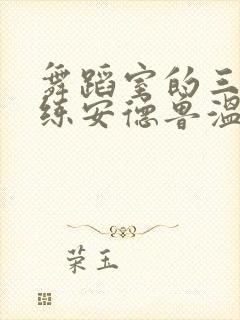 舞蹈室的三
练安德鲁温
荣玉